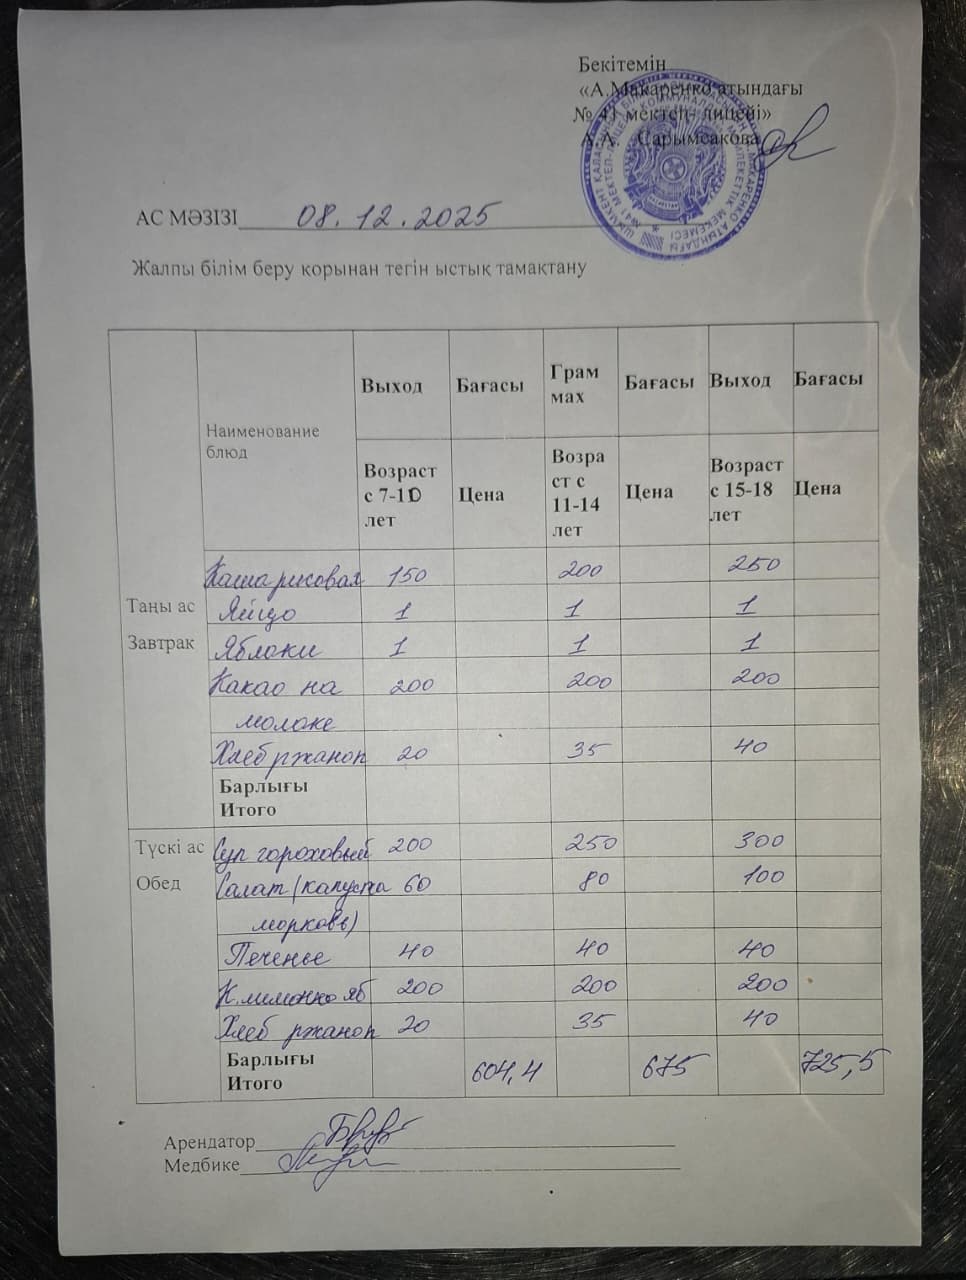 Бекітемін
«А.Макаренко атындағы
№ 41 мектеп- лицейі»
Сарымсакова
АС МӘЗІЗІ 08.12.2025
Жалпы білім беру корынан тегін ыстық тамактану
Наименование блюд Выход Бағасы Грам мах Бағасы Выход Бағасы
Возраст с 7-10 лет Цена Возра ст с 11-14 лет Цена Возраст с 15-18 лет Цена
Таңы ас
Завтрак
Каша рисовая 150 200 250
Яйцо 1 1 1
Яблоки 1 1 1
Какао на 200 200 200
молоке
Хлеб ржаной 20 35 40
Барлығы
Итого
Түскі ас
Обед
Суп гороховый 200 250 300
Салат (капуста 60 80 100
морковь)
Печенье 40 40 40
К. лимонно яб 200 200 200
Хлеб ржаной 20 35 40
Барлығы
Итого 604,4 675 725,5
Арендатор
Медбике